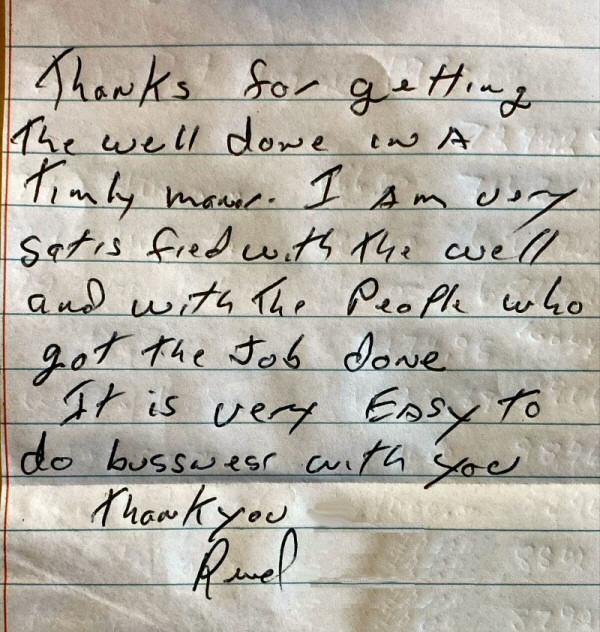 Thanks for getting
The well done in A
Timly maner. I Am very
satisfied with the well
and with The People who
got the Job done
It is very EASY To
do bussness with you
Thank you